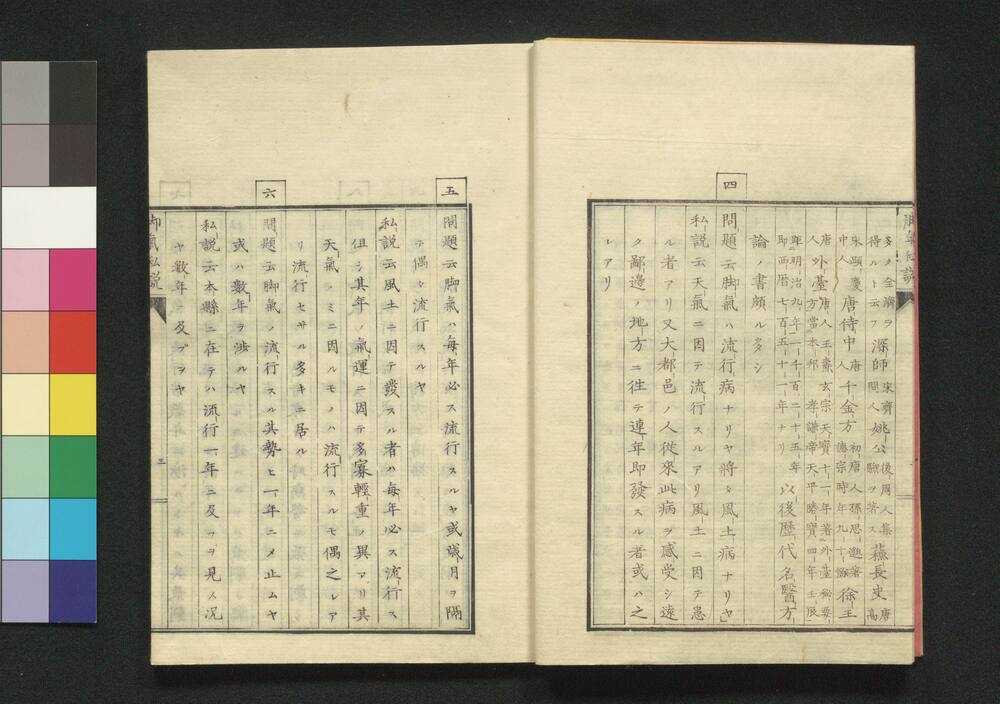 脚氣私説
多ノ全濟ヲ
得ルト云フ
深師
宋齊
間人
姚公
後周人集
驗ヲ著ス
蘓長史
唐
高
宋顯慶
中人
唐侍中
唐
人
千金方
初唐人孫思邈著
徐王
唐人
外臺
唐人王燾玄宗天寳十一年著外臺秘要
方當本邦孝謙帝天平勝寳四年壬辰
距明治九年一千百二十五年
即西暦七百五十一年ナリ
以後歴代名醫方
論ノ書頗ル多シ
四
問題云脚氣ハ流行病ナリヤ將タ風土病ナリヤ
私説云天氣ニ因テ流行スルアリ風土ニ因テ患
ル者アリ又大都邑ノ人從來此病ヲ感受シ遠
ク鄙邊ノ地方ニ徃テ連年即發スル者或ハ之
レアリ
五
問題云脚氣ハ毎年必ス流行スルヤ或歳月ヲ隔
テ偶々流行スルヤ
私説云風土ニ因テ發スル者ハ毎年必ス流行ス
但シ其年ノ氣運ニ因テ多寡輕重ノ異アリ其
天氣ノミニ因ルモノハ流行スルモ偶之レア
リ流行セサル多キニ居ル
六
問題云脚氣ノ流行スル其勢ヒ一年ニメ止ムヤ
或ハ數年ヲ渉ルヤ
私説云本縣ニ在テハ流行一年ニ及フヲ見ス况
ヤ數年ニ及フヲヤ
脚氣私説
三